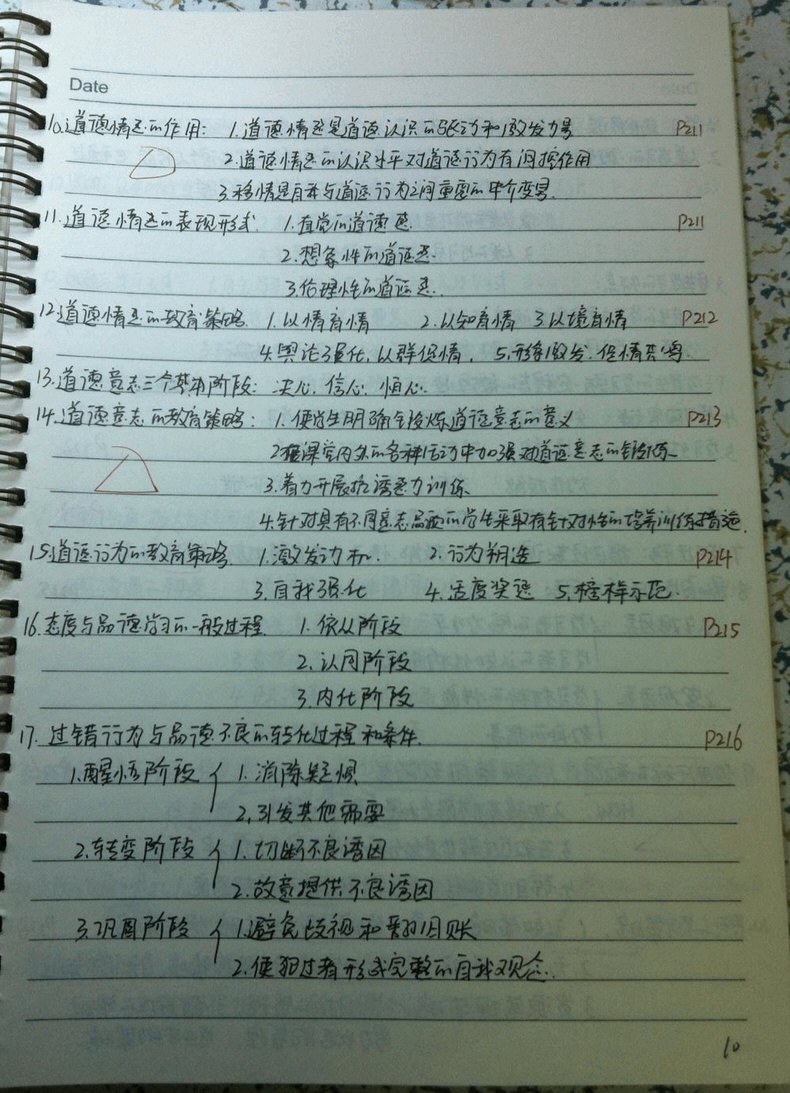 Date
10.道德情感的作用: 1.道德情感是道德认识的驱动和激发力量 P211
2.道德情感的认识水平对道德行为有间接作用
3.移情是自我与道德行为之间重要的中介变量
11.道德情感的表现形式 1.直觉的道德感. P211
2.想象性的道德感.
3.伦理性的道德感.
12.道德情感的教育策略 1.以情育情 2.以知育情 3.以境育情 P212
4.舆论强化,以群促情, 5.形象激发,促情共鸣.
13.道德意志三个基本阶段: 决心、信心、恒心.
14.道德意志的教育策略: 1.使学生明确锻炼道德意志的意义 P213
2.在课堂内外的各种活动中加强对道德意志的锻炼
3.着力开展抗诱惑力训练
4.针对具有不同意志品质的学生采取有针对性的培养训练措施.
15.道德行为的教育策略 1.激发动机. 2.行为塑造 P214
3.自我强化 4.适度奖惩 5.榜样示范.
16.态度与品德学习的一般过程. 1.依从阶段 P215
2.认同阶段
3.内化阶段
17.过错行为与品德不良的转化过程和条件. P216
1.醒悟阶段 1.消除疑惧
2.引发其他需要
2.转变阶段 1.切断不良诱因
2.故意提供不良诱因
3.巩固阶段 1.避免歧视和翻旧账
2.使犯过者形成完整的自我观念.
10